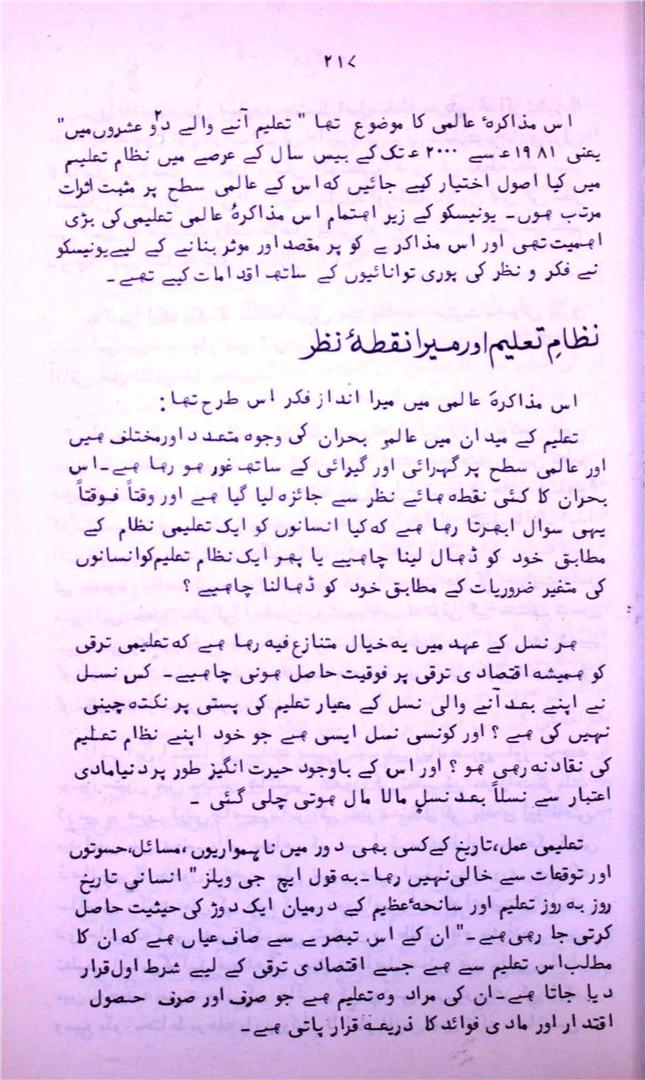 ۲۱۷
اس مذاکرۂ عالمی کا موضوع تھا " تعلیم آنے والے دو۲ عشروں میں"
یعنی ۱۹۸۱ء سے ۲۰۰۰ء تک کے بیس سال کے عرصے میں نظام تعلیم
میں کیا اصول اختیار کیے جائیں کہ اس کے عالمی سطح پر مثبت اثرات
مرتب ہوں۔ یونیسکو کے زیر اہتمام اس مذاکرۂ عالمی تعلیمی کی بڑی
اہمیت تھی اور اس مذاکرے کو پر مقصد اور موثر بنانے کے لیے یونیسکو
نے فکر و نظر کی پوری توانائیوں کے ساتھ اقدامات کیے تھے۔
نظامِ تعلیم اور میرا نقطۂ نظر
اس مذاکرۂ عالمی میں میرا انداز فکر اس طرح تھا:
تعلیم کے میدان میں عالمی بحران کی وجوہ متعدد اور مختلف ہیں
اور عالمی سطح پر گہرائی اور گیرائی کے ساتھ غور ہو رہا ہے۔ اس
بحران کا کئی نقطہ ہائے نظر سے جائزہ لیا گیا ہے اور وقتاً فوقتاً
یہی سوال ابھرتا رہا ہے کہ کیا انسانوں کو ایک تعلیمی نظام کے
مطابق خود کو ڈھال لینا چاہیے یا پھر ایک نظام تعلیم کو انسانوں
کی متغیر ضروریات کے مطابق خود کو ڈھالنا چاہیے ؟
ہر نسل کے عہد میں یہ خیال متنازع فیہ رہا ہے کہ تعلیمی ترقی
کو ہمیشہ اقتصادی ترقی پر فوقیت حاصل ہونی چاہیے۔ کس نسل
نے اپنے بعد آنے والی نسل کے معیار تعلیم کی پستی پر نکتہ چینی
نہیں کی ہے ؟ اور کونسی نسل ایسی ہے جو خود اپنے نظام تعلیم
کی نقاد نہ رہی ہو ؟ اور اس کے باوجود حیرت انگیز طور پر دنیا مادی
اعتبار سے نسلاً بعد نسلٍ مالا مال ہوتی چلی گئی ۔
تعلیمی عمل، تاریخ کے کسی بھی دور میں ناہمواریوں، مسائل، حسرتوں
اور توقعات سے خالی نہیں رہا۔ بہ قول ایچ جی ویلز " انسانی تاریخ
روز بہ روز تعلیم اور سانحۂ عظیم کے درمیان ایک دوڑ کی حیثیت حاصل
کرتی جا رہی ہے۔" ان کے اس تبصرے سے صاف عیاں ہے کہ ان کا
مطلب اس تعلیم سے ہے جسے اقتصادی ترقی کے لیے شرط اول قرار
دیا جاتا ہے۔ ان کی مراد وہ تعلیم ہے جو صرف اور صرف حصول
اقتدار اور مادی فوائد کا ذریعہ قرار پاتی ہے۔